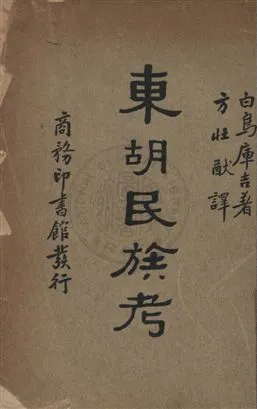 白鳥庫吉著
方壯猷譯
東胡民族考
商務印書館發行